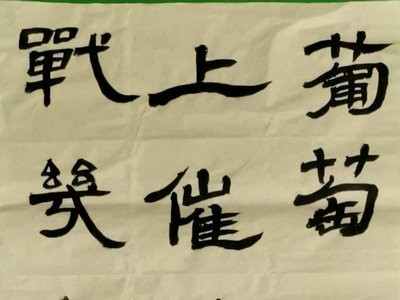 葡萄
上催
戰幾